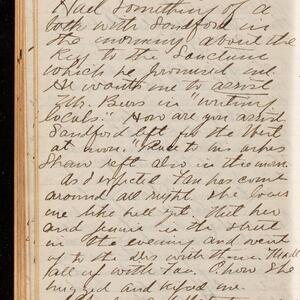 Had something of a
talk with Sandford in
the morning about the
Key to the Sanctum
which he promised me.
He wants me to assist
Mr. Beers in "writing
locals." How are you assist
Sandford left for the West
at noon. "Peace to his ashes
Shaw left also in the morn.
As I expected Fan has come
around all right. She loves
me like hell yet. Met her
and Jennie in the street
in the evening and went
up to the Drs with them.
fall up with Fan. O how she
hugged and kissed me.